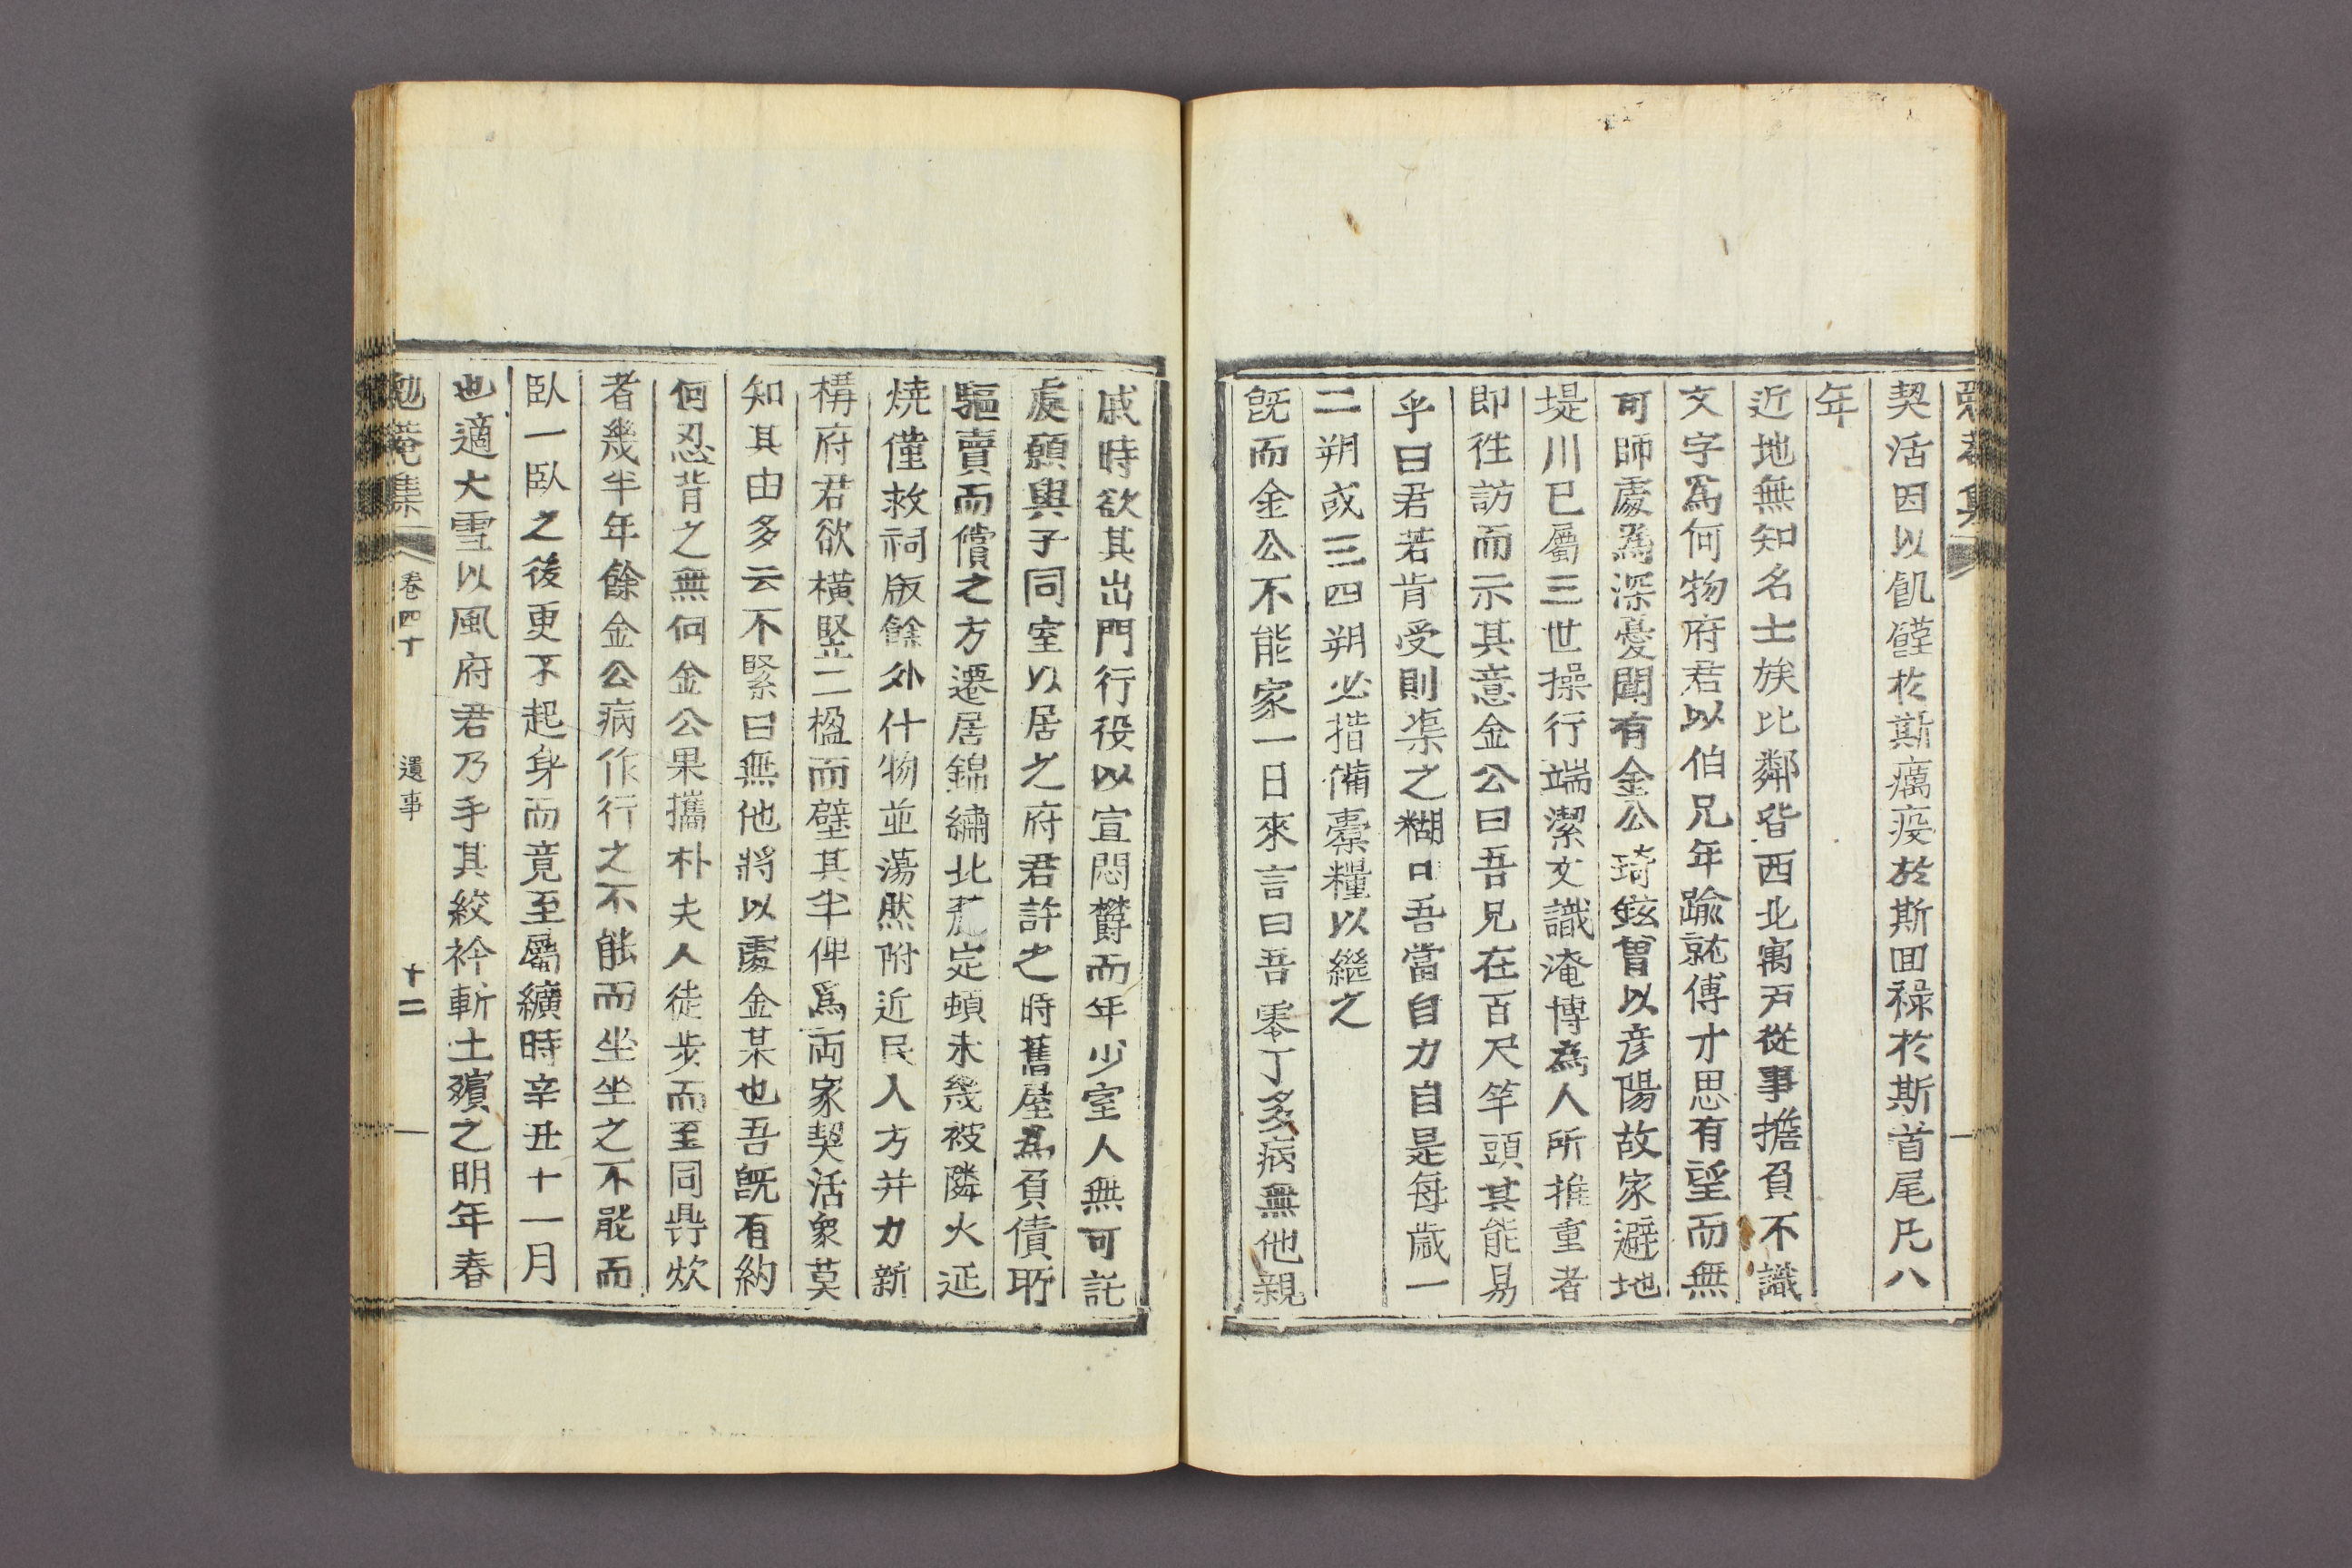 契活因以飢饉於斯癘疫於斯回祿於斯首尾凡八
年
近地無知名士族比鄰皆西北寓戶從事擔負不識
文字爲何物府君以伯兄年踰就傅才思有望而無
可師處爲深憂聞有金公琦鉉曾以彦陽故家避地
堤川已屬三世操行端潔文識淹博爲人所推重者
即徃訪而示其意金公曰吾兄在百尺竿頭其能易
乎曰君若肯受則渠之糊口吾當自力自是每歲一
二朔或三四朔必措備槖糧以繼之
旣而金公不能家一日來言曰吾零丁多病無他親
戚時欲其出門行役以宣悶欝而年少室人無可託
處願與子同室以居之府君許之時舊屋爲負債所
驅賣而償之方遷居錦繡北麓定頓未幾被隣火延
燒僅救祠版餘外什物並蕩然附近民人方并力新
構府君欲橫竪二楹而壁其半俾爲両家契活衆莫
知其由多云不緊曰無他將以處金某也吾旣有約
何忍背之無何金公果攜朴夫人徒步而至同爨炊
者幾半年餘金公病作行之不能而坐坐之不能而
臥一臥之後更不起身而竟至屬纊時辛丑十一月
也適大雪以風府君乃手其絞衿斬土殯之明年春
勉菴集 卷四十 遺事 十二